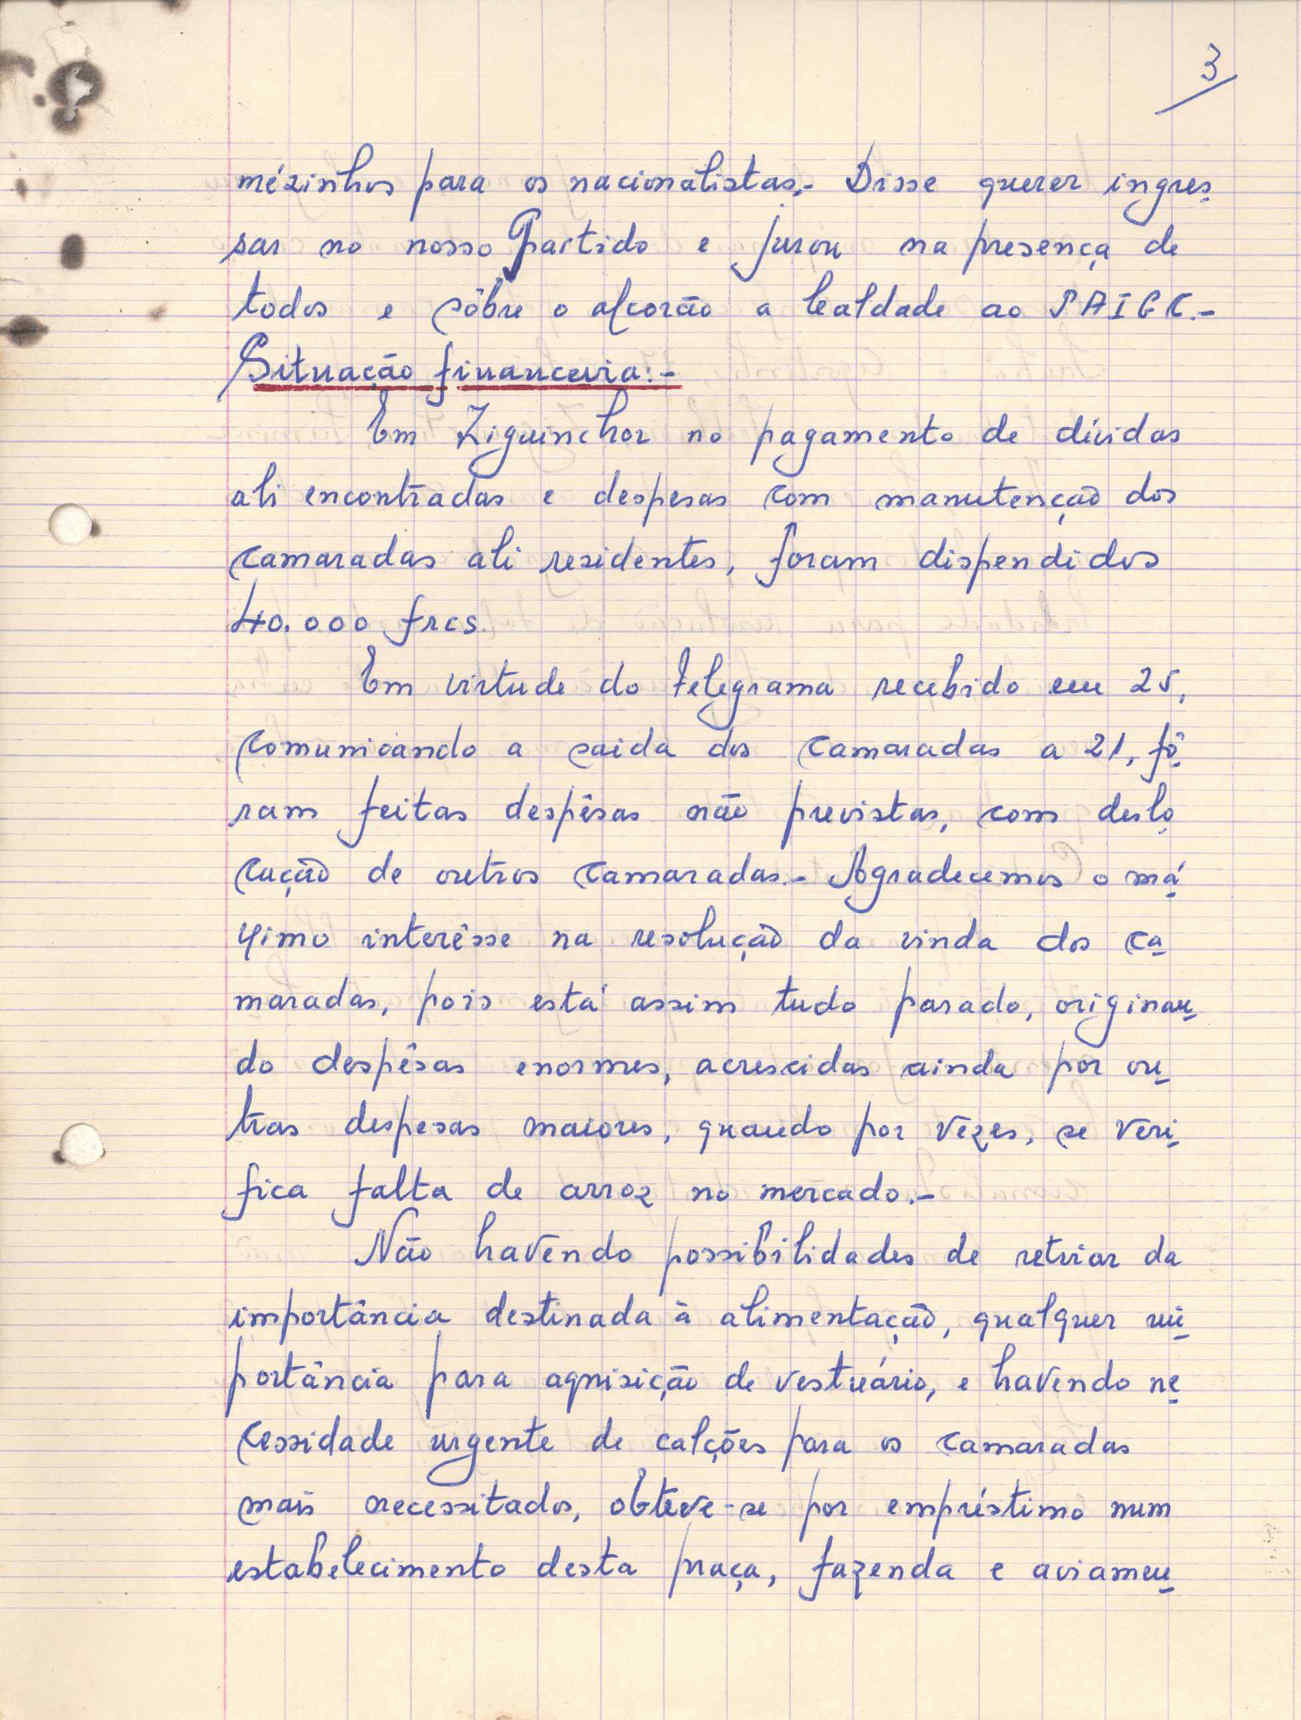 3
mézinhos para os nacionalistas.- Disse querer ingres
sar no nosso Partido e jurou na presença de
todos e sôbre o alcorão a lealdade ao PAIGC.-
Situação financeira:-
Em Ziguinchor no pagamento de dívidas
ali encontradas e despesas com manutenção dos
camaradas ali residentes, foram dispendidos
40.000 frcs.
Em virtude do telegrama recebido em 25,
comunicando a saida dos camaradas a 21, fô
ram feitas despêsas não previstas, com deslo
cação de outros camaradas.- Agradecemos o má
ximo interêsse na resolução da vinda dos ca
maradas, pois está assim tudo parado, originan
do despêsas enormes, acrescidas ainda por ou
tras despesas maiores, quando por vêzes, se veri
fica falta de arroz no mercado.-
Não havendo possibilidades de retirar da
importância destinada à alimentação, qualquer im
portância para aquisição de vestuário, e havendo ne
cessidade urgente de calções para os camaradas
mais necessitados, obteve-se por empréstimo num
estabelecimento desta praça, fazenda e aviamen